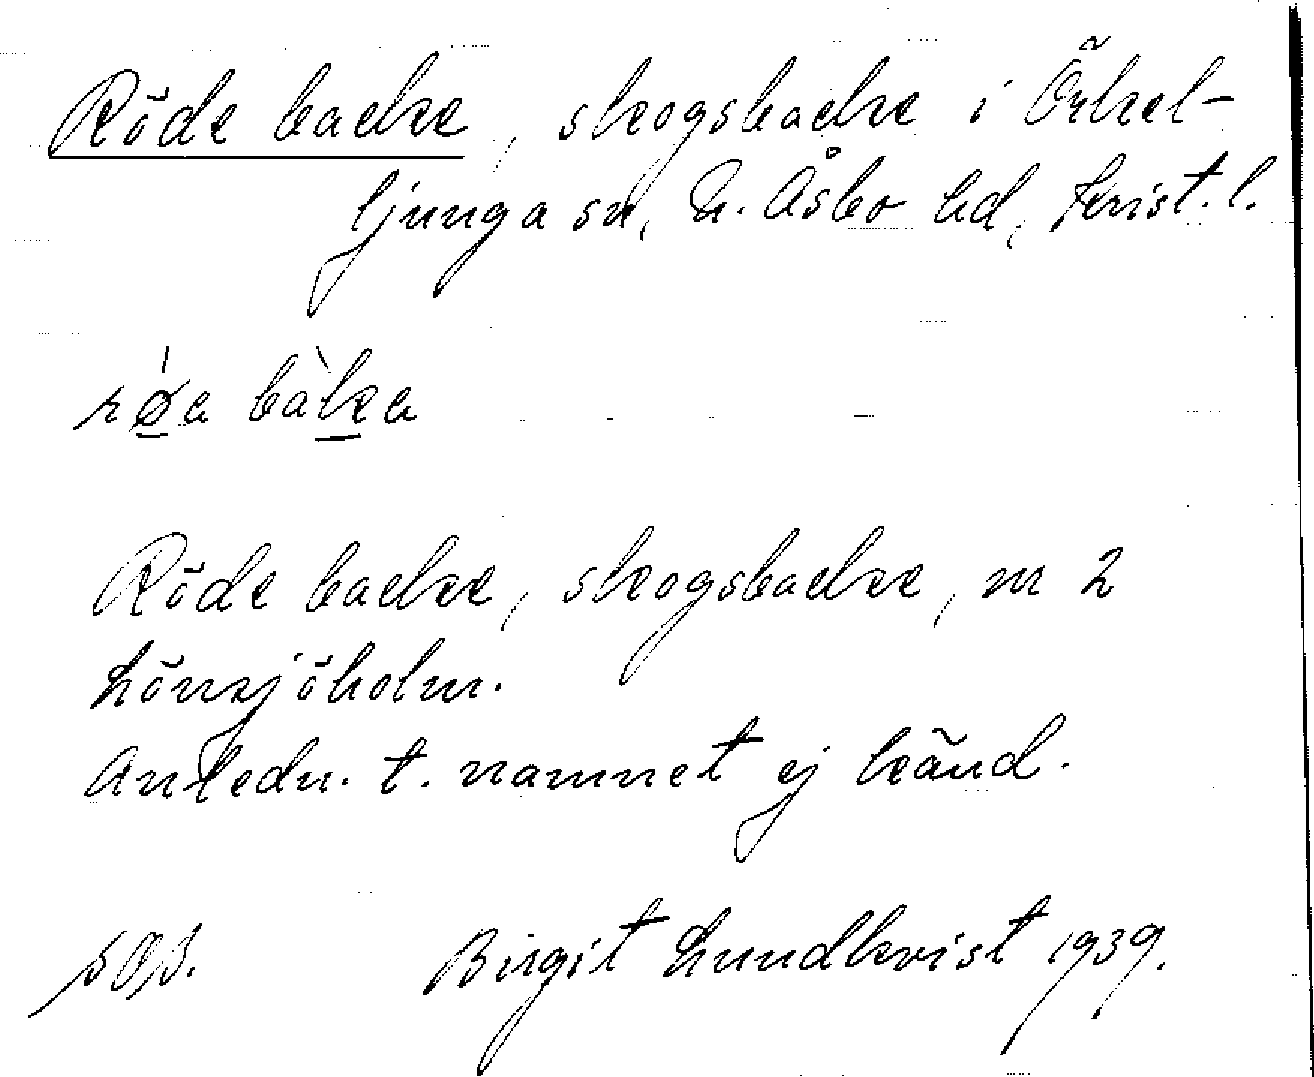 Röde backe, skogsbacke i Örkel-
ljunga sn, N. Åsbo hd, Krist. l.
røa bàka
Röde backe, skogsbacke, m 2
Lönsjöholm.
Anledn. t. namnet ej känd.
Birgit Lundkvist 1939.